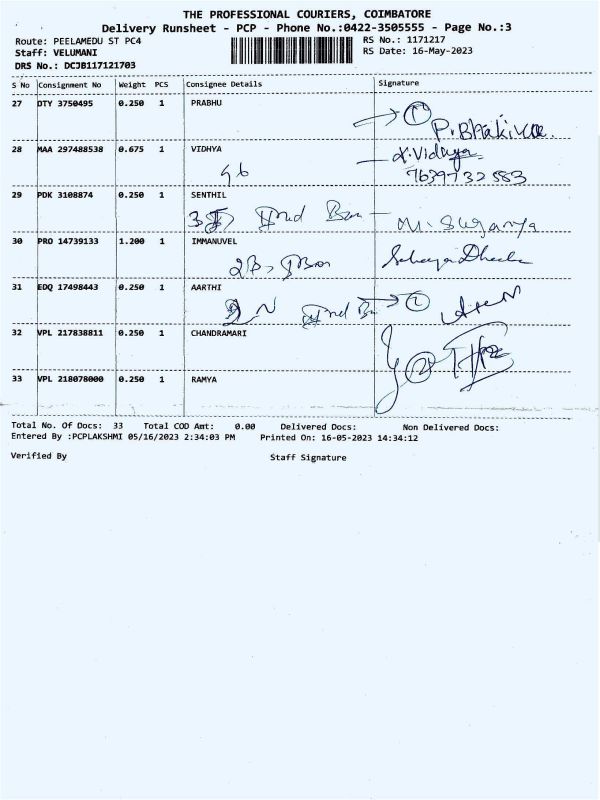 THE PROFESSIONAL COURIERS, COIMBATORE
Delivery Runsheet - PCP - Phone No.:0422-3505555 - Page No.:3
Route: PEELAMEDU ST PC4 RS No.: 1171217
Staff: VELUMANI RS Date: 16-May-2023
DRS No.: DCJB117121703
S No Consignment No Weight PCS Consignee Details Signature
27 DTY 3750495 0.250 1 PRABHU
28 MAA 297488538 0.675 1 VIDHYA
K.Vidhya
7639732583
29 PDK 3108874 0.250 1 SENTHIL
M. Suganya
30 PRO 14739133 1.200 1 IMMANUVEL
31 EDQ 17498443 0.250 1 AARTHI
32 VPL 217838811 0.250 1 CHANDRAMARI
33 VPL 218078000 0.250 1 RAMYA
Total No. Of Docs: 33 Total COD Amt: 0.00 Delivered Docs: Non Delivered Docs:
Entered By :PCPLAKSHMI 05/16/2023 2:34:03 PM Printed On: 16-05-2023 14:34:12
Verified By Staff Signature